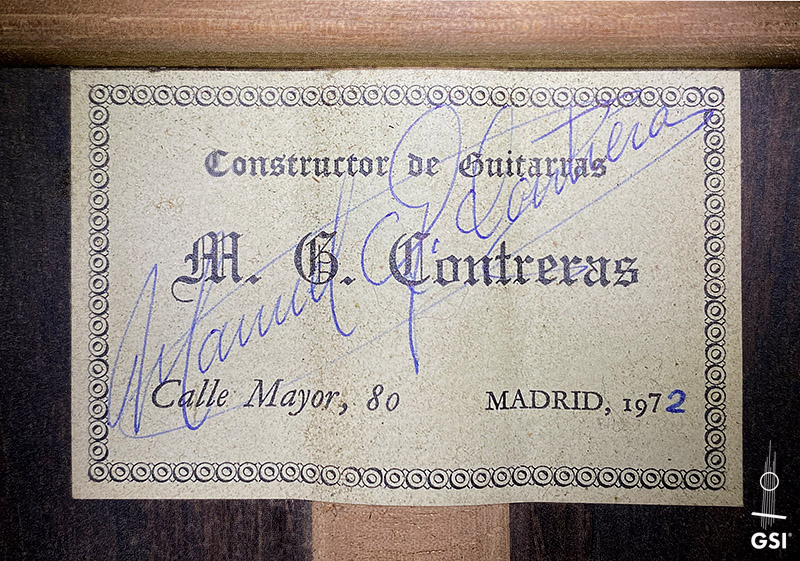 Constructor de Guitarras
M. G. Contreras
Manuel G Contreras
Calle Mayor, 80 MADRID, 1972
GSI®